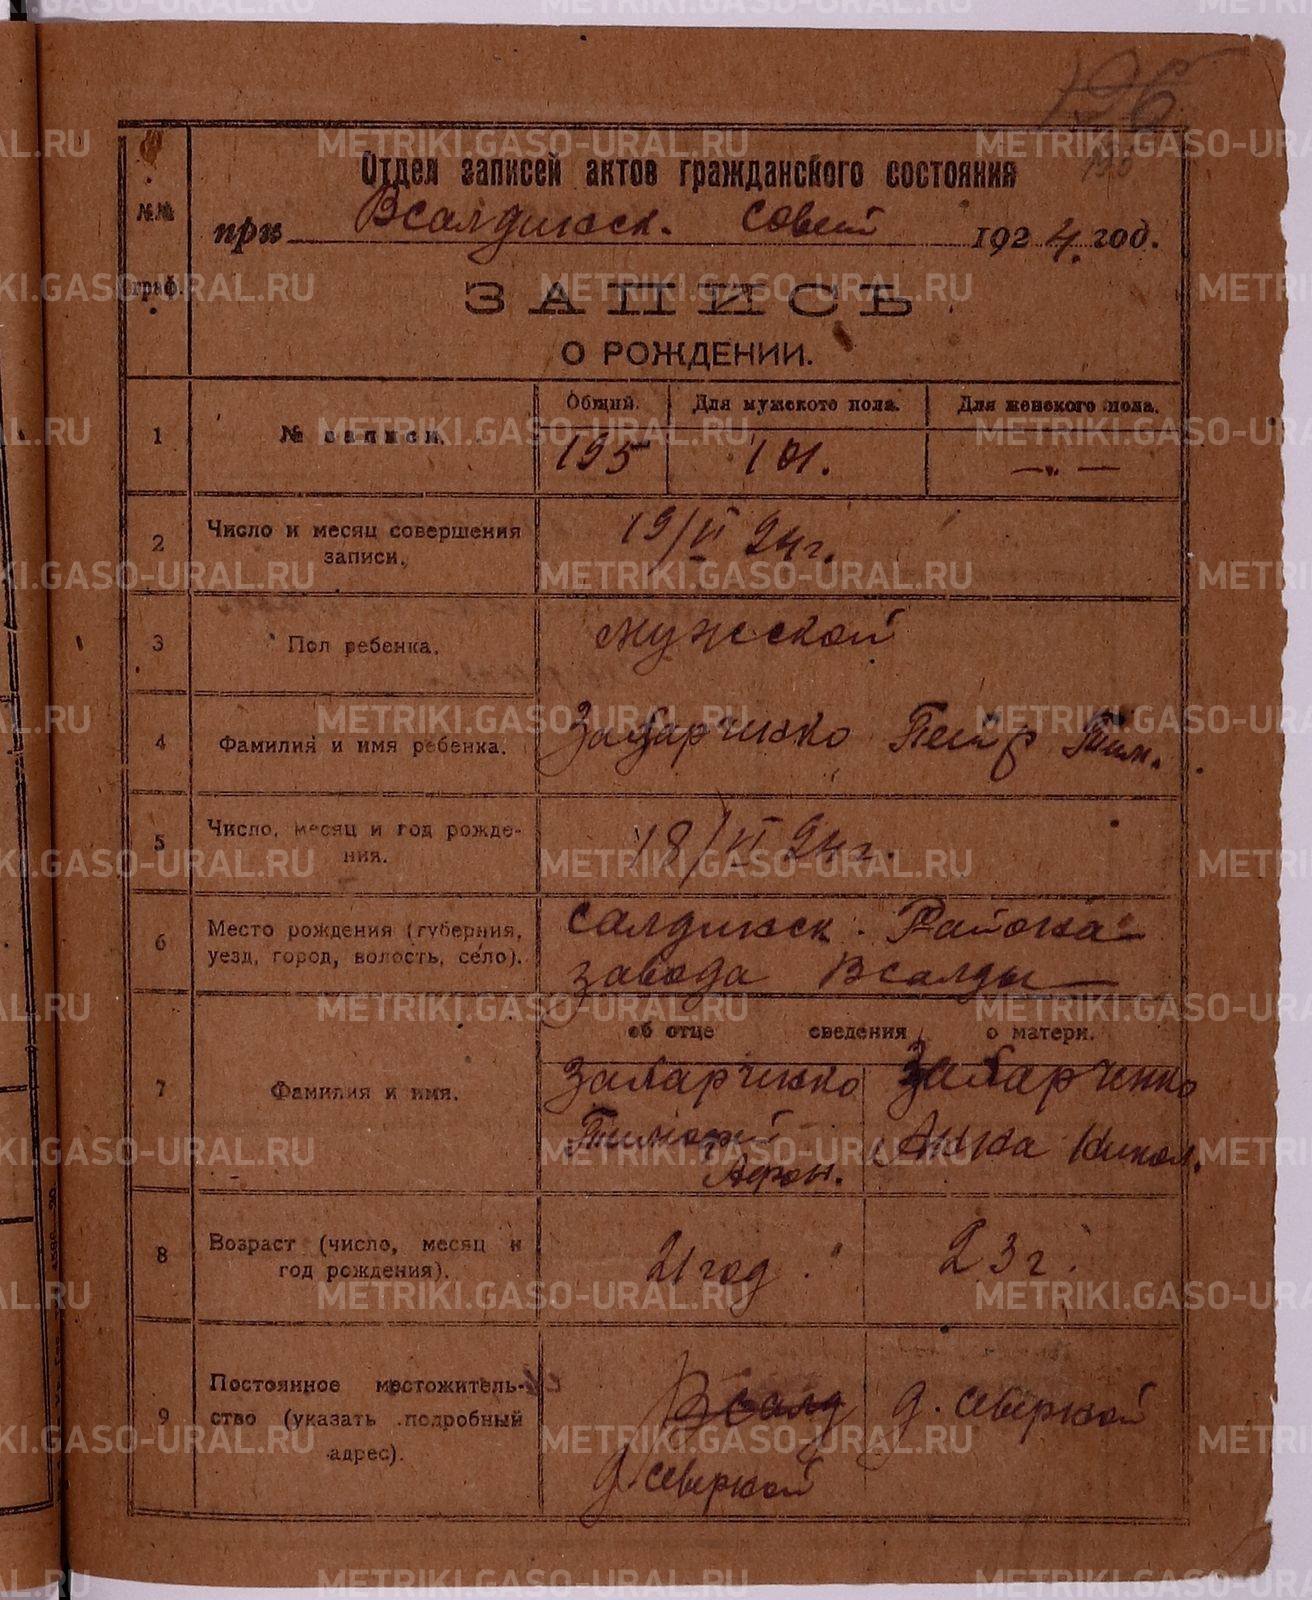 196
195
Отдел записей актов гражданского состояния
№№ граф.
при Всалдинск. совет 1924 год.
ЗАПИСЬ
О РОЖДЕНИИ.
1 № записи. Общий. Для мужского пола. Для женского пола.
195 101. — " —
2 Число и месяц совершения записи. 19/VI 24 г.
3 Пол ребенка. мужской
4 Фамилия и имя ребенка. Забарчинко Петр Тим.
5 Число, месяц и год рожде-
ния. 18/VI 24 г.
6 Место рождения (губерния, Салдинск. Района
уезд, город, волость, село). завода Всалды
об отце сведения о матери.
7 Фамилия и имя. Забарчинко Забарченко
Тимофей Анна Никол.
Афон.
8 Возраст (число, месяц и
год рождения). 21 год. 23 г.
9 Постоянное местожитель-
ство (указать подробный Всалд д. северной
адрес). д. северной
METRIKI.GASO-URAL.RU